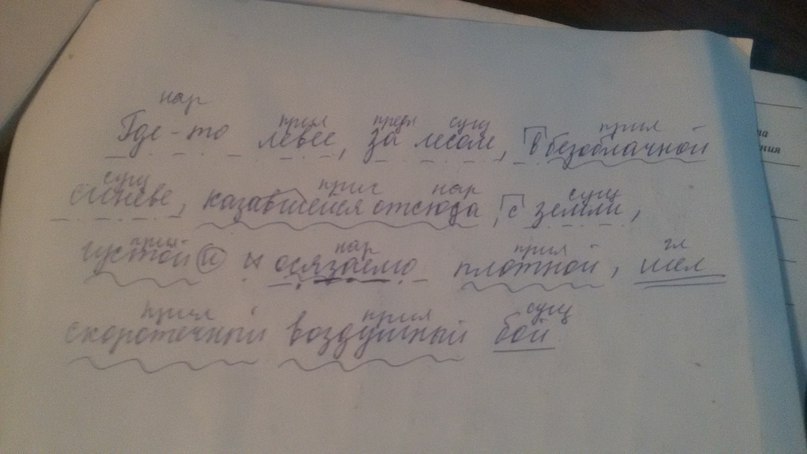 нар
прил предл сущ прил
Где-то левее, за лесом, в безоблачной
сущ прич нар сущ
синеве, казавшейся отсюда, с земли,
прил нар прил гл
густой и осязаемо плотной, шел
прил прил сущ
скоротечный воздушный бой